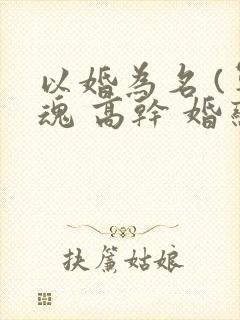 以婚為名(
魂 高幹 婚
扶簾姑娘